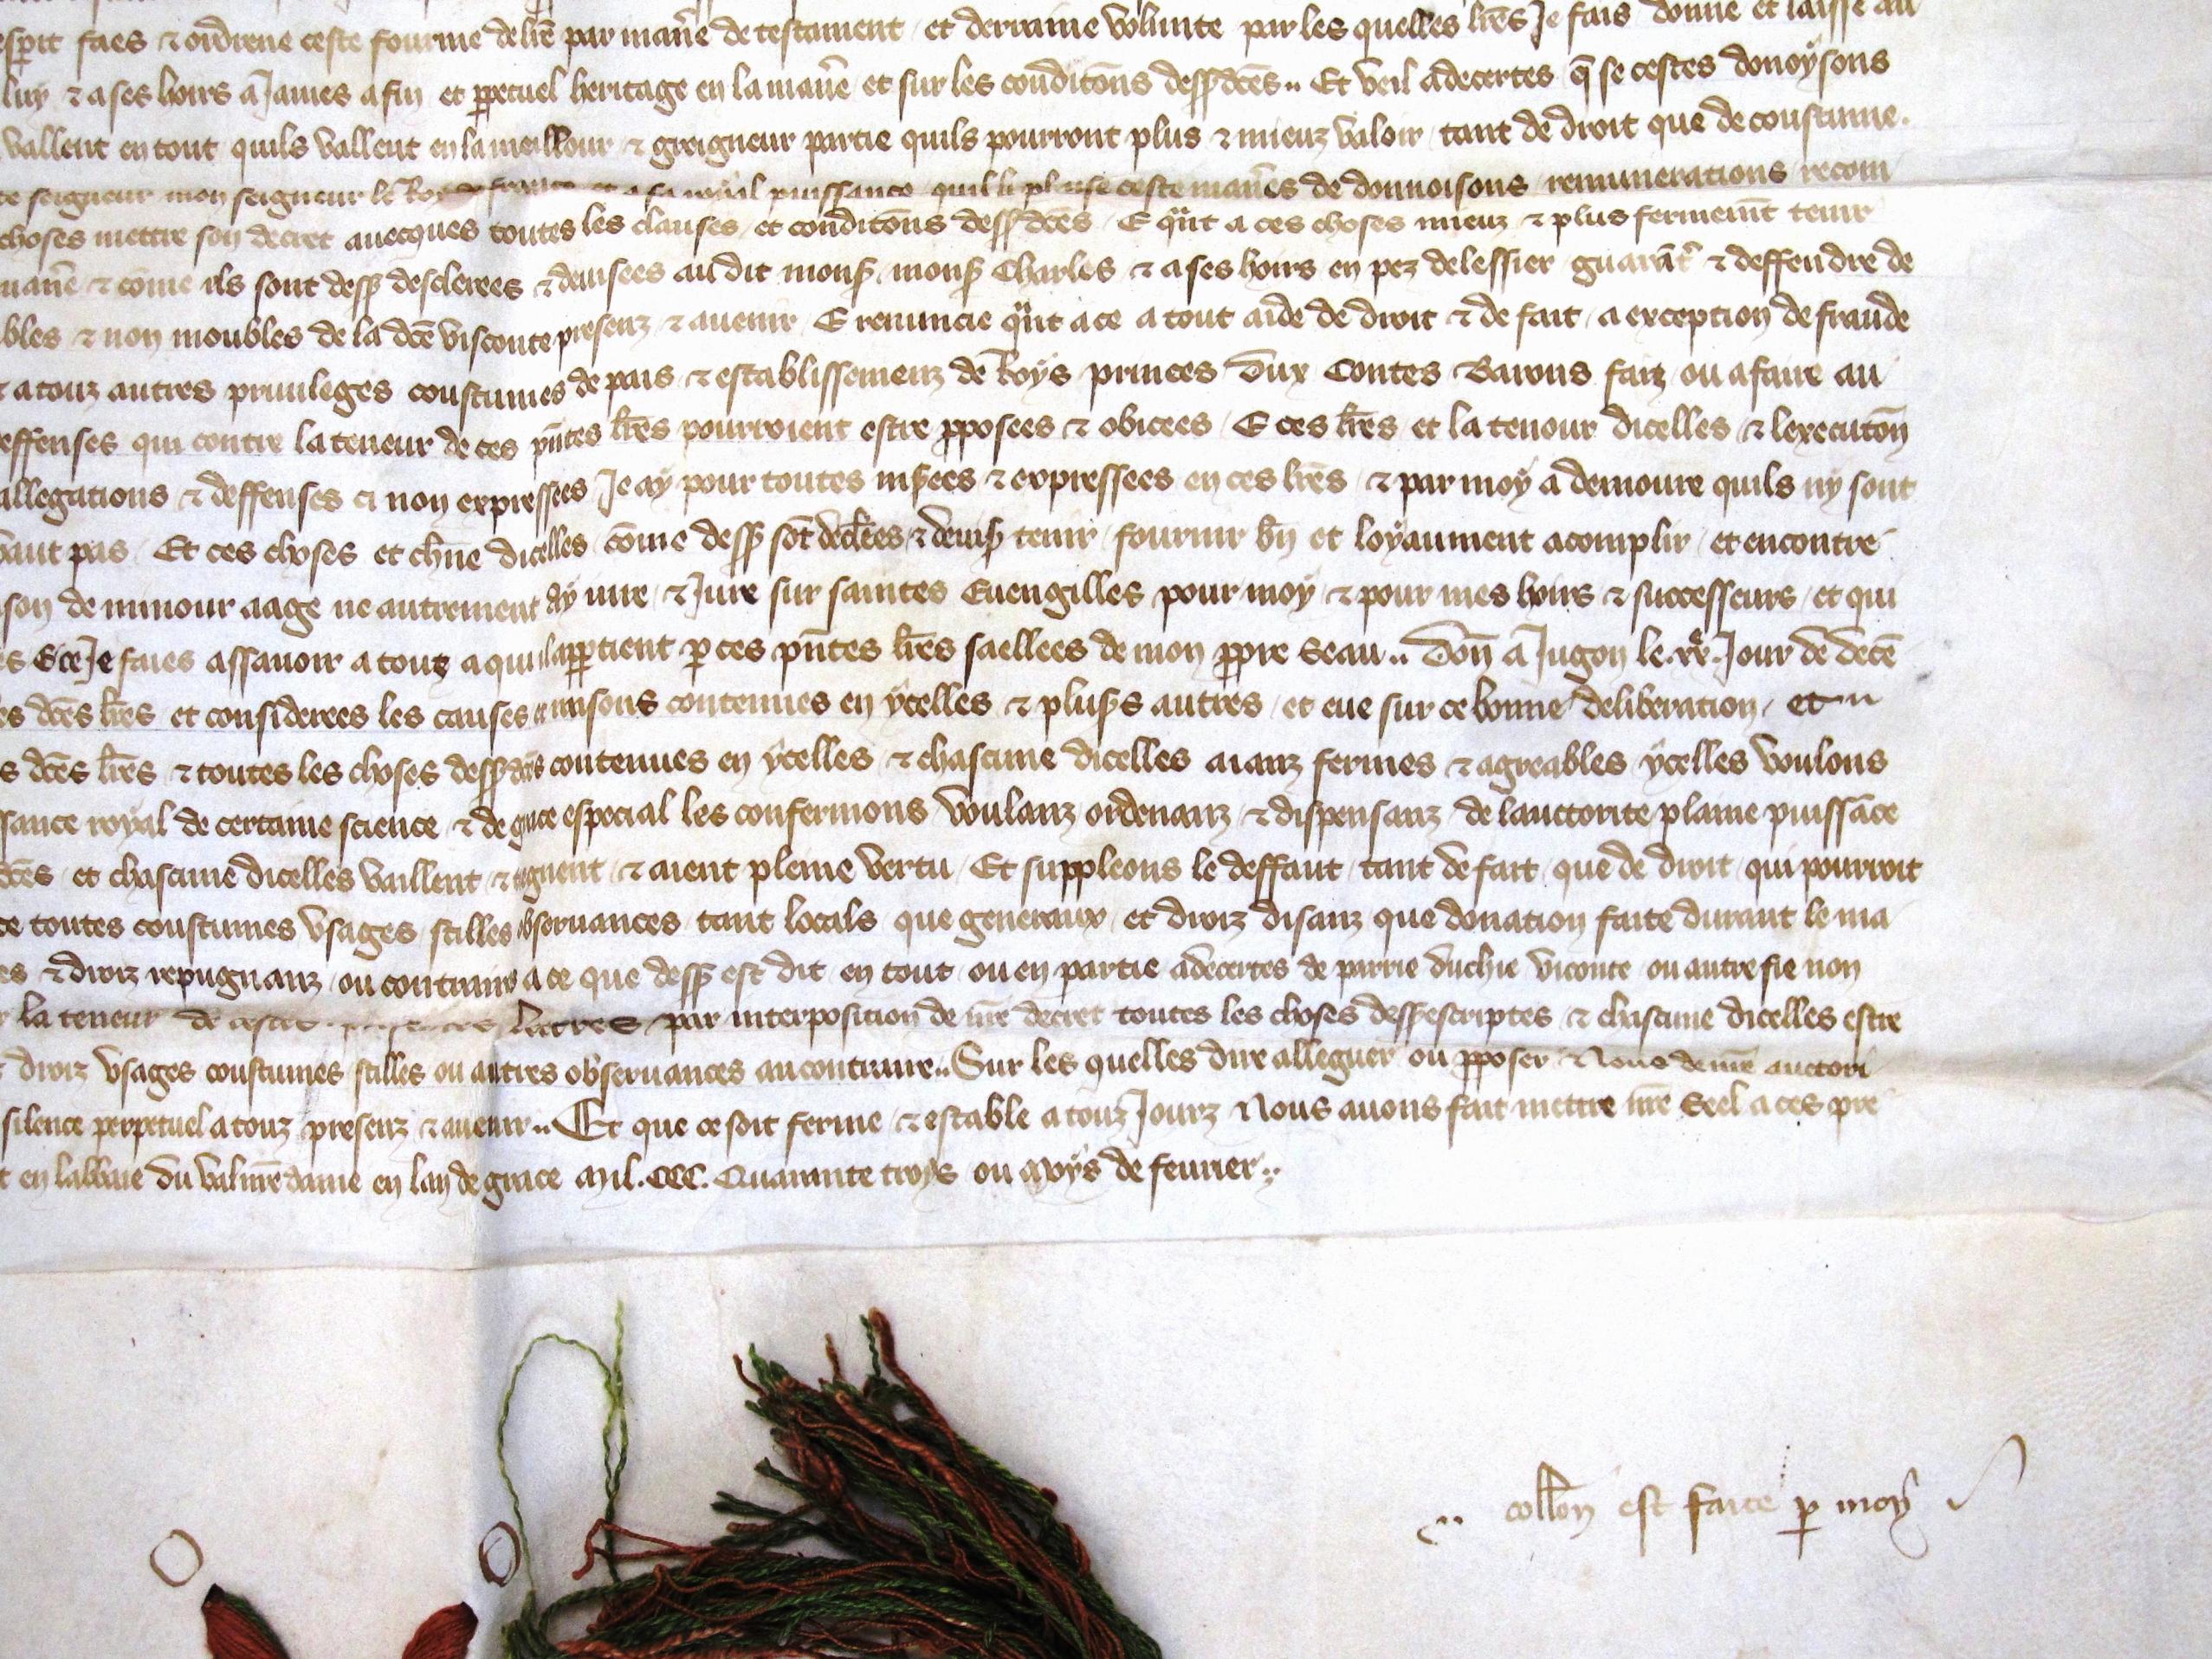 esperit faes & ordrene ceste fourme de lrē par manẽ de testament et derraine volunte par les quelles lrēs Je fais donne et laisse au
luy & a ses hoirs a James a fin et ppetuel heritage en la manẽ et sur les conditõns dess dcẽs .. Et veil adecertes q̃ se cestes donoysons
vallent en tout quils vallent en la meillour & greigneur partie quils pourront plus & mieuz valoir tant de droit que de coustume.
seigneur mon seigneur le Roy de france et a sa royal puissance quil li plaise ceste manẽs de donnoisons remunerations recom
choses mettre son decret auecques toutes les clauses et conditõns dess dcẽs E qnt a ces choses mieuz & plus fermemt tenir
manẽ & cõme ils sont dess desclerees & deuisees au dit mons mons Charles & a ses hoirs en pez delessier guarãt & deffendre de
bles & non moubles de la dcẽ visconte presenz & auenir E renuncie qnt a ce a tout aide de droit & de fait a exception de fraude
& a touz autres priuileges coustumes de pais & establissemenz de Roys princes Dux Contes Barons faiz ou a faire au
effenses qui contre la teneur de ces pñtes lrẽs pourroient estre pposees & obicees E ces lrẽs et la tenour dicelles & lexecutõn
allegations & deffenses ci non expressees Je ay pour toutes insees & expressees en ces lrẽs & par moy a demoure quils ny sont
vaut pas Et ces choses et chũne dicelles cõme dess sõt declrees & deuis tenir fournir bñ et loyaument acomplir et encontre
son de minour aage ne autrement Ay iure & Jure sur saintes Euengilles pour moy & pour mes hoirs & successeurs et qui
E ce Je faies assauoir a touz a qui lappartient p ces pñtes lrẽs saellees de mon ppre Seau .. Doñ a Jugon le .xxe. Jour de decẽ
es dcẽs lrẽs et considerees les causes & raisons contenues en ycelles & plus's autres et eue sur ce bonne deliberation et
s dcẽs lrẽs & toutes les choses dess dcẽs contenues en ycelles & chascune dicelles aianz fermes & agreables ycelles voulons
sance royal de certaine science & de grace especial les confermons voulanz ordenanz & dispensanz de lauctorite plaine puissãce
dcẽs et chascune dicelles vaillent & tiegnent & aient pleine vertu Et suppleons le deffaut tant de fait que de droit qui pourroit
ce toutes coustumes vsages stilles obseruances tant locals que generaux et droiz disanz que donation faite durant le ma
es & droiz repugnanz ou contraires a ce que dess est dit en tout ou en partie adecertes de parrie duchie viconte ou autre fie non
la teneur de cestes presentes lettres par interposition de nrẽ decret toutes les choses dess escriptes & chascune dicelles estre
droiz vsages coustumes stilles ou autres obseruances au contraire .. Sur les quelles dire alleguer ou pposer & Nous de nrẽ auctori
silence perpetuel a touz presenz & auenir .. Et que ce soit ferme & estable a touz Jourz Nous auons fait mettre nrẽ Seel a ces pre
en labbaie du val nrẽ dame en lan de grace Mil. CCC. Quarante troys ou moys de feurier
.. collõn est faite p moy